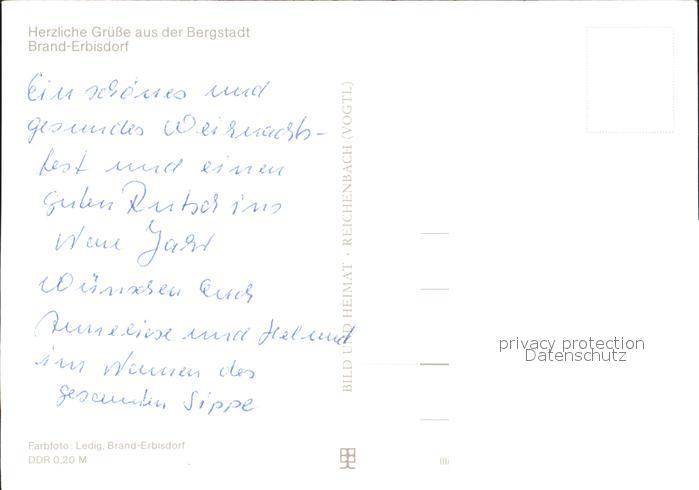 Herzliche Grüße aus der Bergstadt
Brand-Erbisdorf
Ein schönes und
gesundes Weihnachts-
fest und einen
guten Rutsch ins
Neue Jahr
Wünschen Euch
Anneliese und Helmut
im Namen des
gesamten Sippe
BILD UND HEIMAT · REICHENBACH (VOGTL)
privacy protection
Datenschutz
Farbfoto: Ledig, Brand-Erbisdorf
DDR 0,20 M